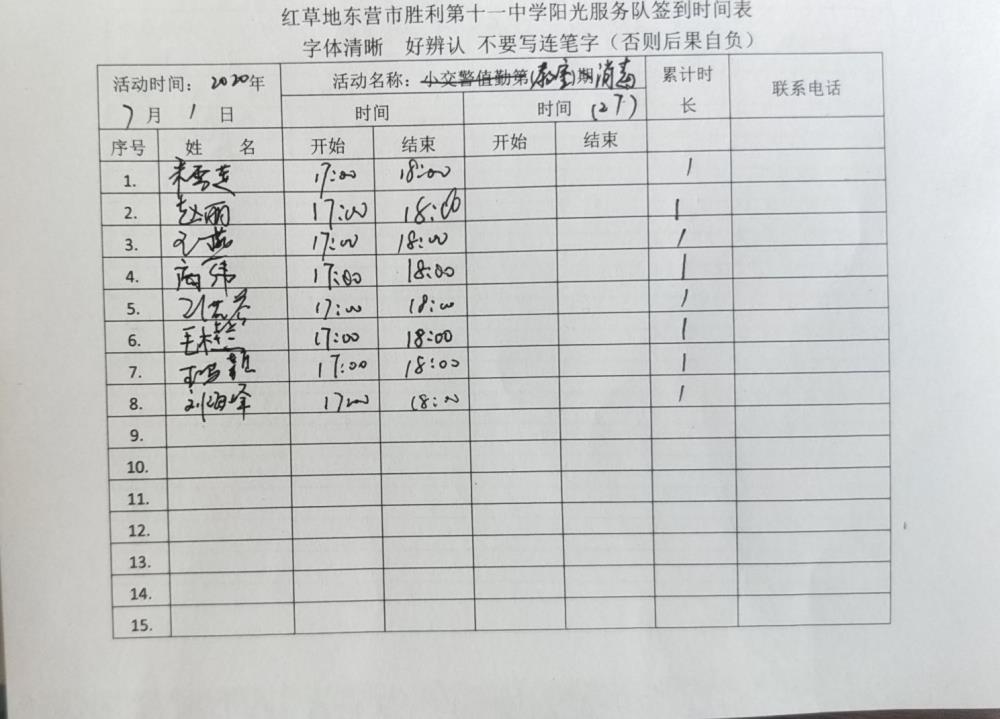 红草地东营市胜利第十一中学阳光服务队签到时间表
字体清晰 好辨认 不要写连笔字（否则后果自负）
活动时间： 2020年 活动名称：小交警值勤第(教室)期 消毒 累计时长 联系电话
7月 1日 时间 时间 (27)
序号 姓 名 开始 结束 开始 结束
1. 17:00 18:00 1
2. 赵丽 17:00 18:00 1
3. 王燕 17:00 18:00 1
4. 商伟 17:00 18:00 1
5. 17:00 18:00 1
6. 毛 17:00 18:00 1
7. 17:00 18:00 1
8. 刘海峰 17:00 18:00 1
9.
10.
11.
12.
13.
14.
15.